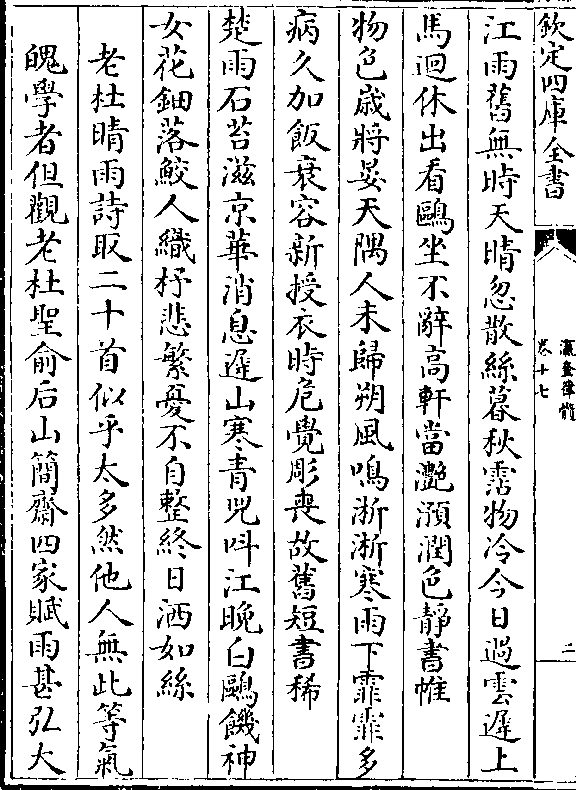 欽定四庫全書
瀛奎律髓
卷十七
二
江雨舊無時天晴忽散絲暮秋霑物冷今日過雲遲上
馬迴休出看鷗坐不辭高軒當灧澦潤色靜書帷
物色歲將晏天隅人未歸朔風鳴淅淅寒雨下霏霏多
病久加飯衰容新授衣時危覺彫喪故舊短書稀
楚雨石苔滋京華消息遲山寒青兕呌江晚白鷗饑神
女花鈿落鮫人織杼悲繁憂不自整終日洒如絲
老杜晴雨詩取二十首似乎太多然他人無此等氣
魄學者但觀老杜聖俞后山簡齋四家賦雨甚弘大